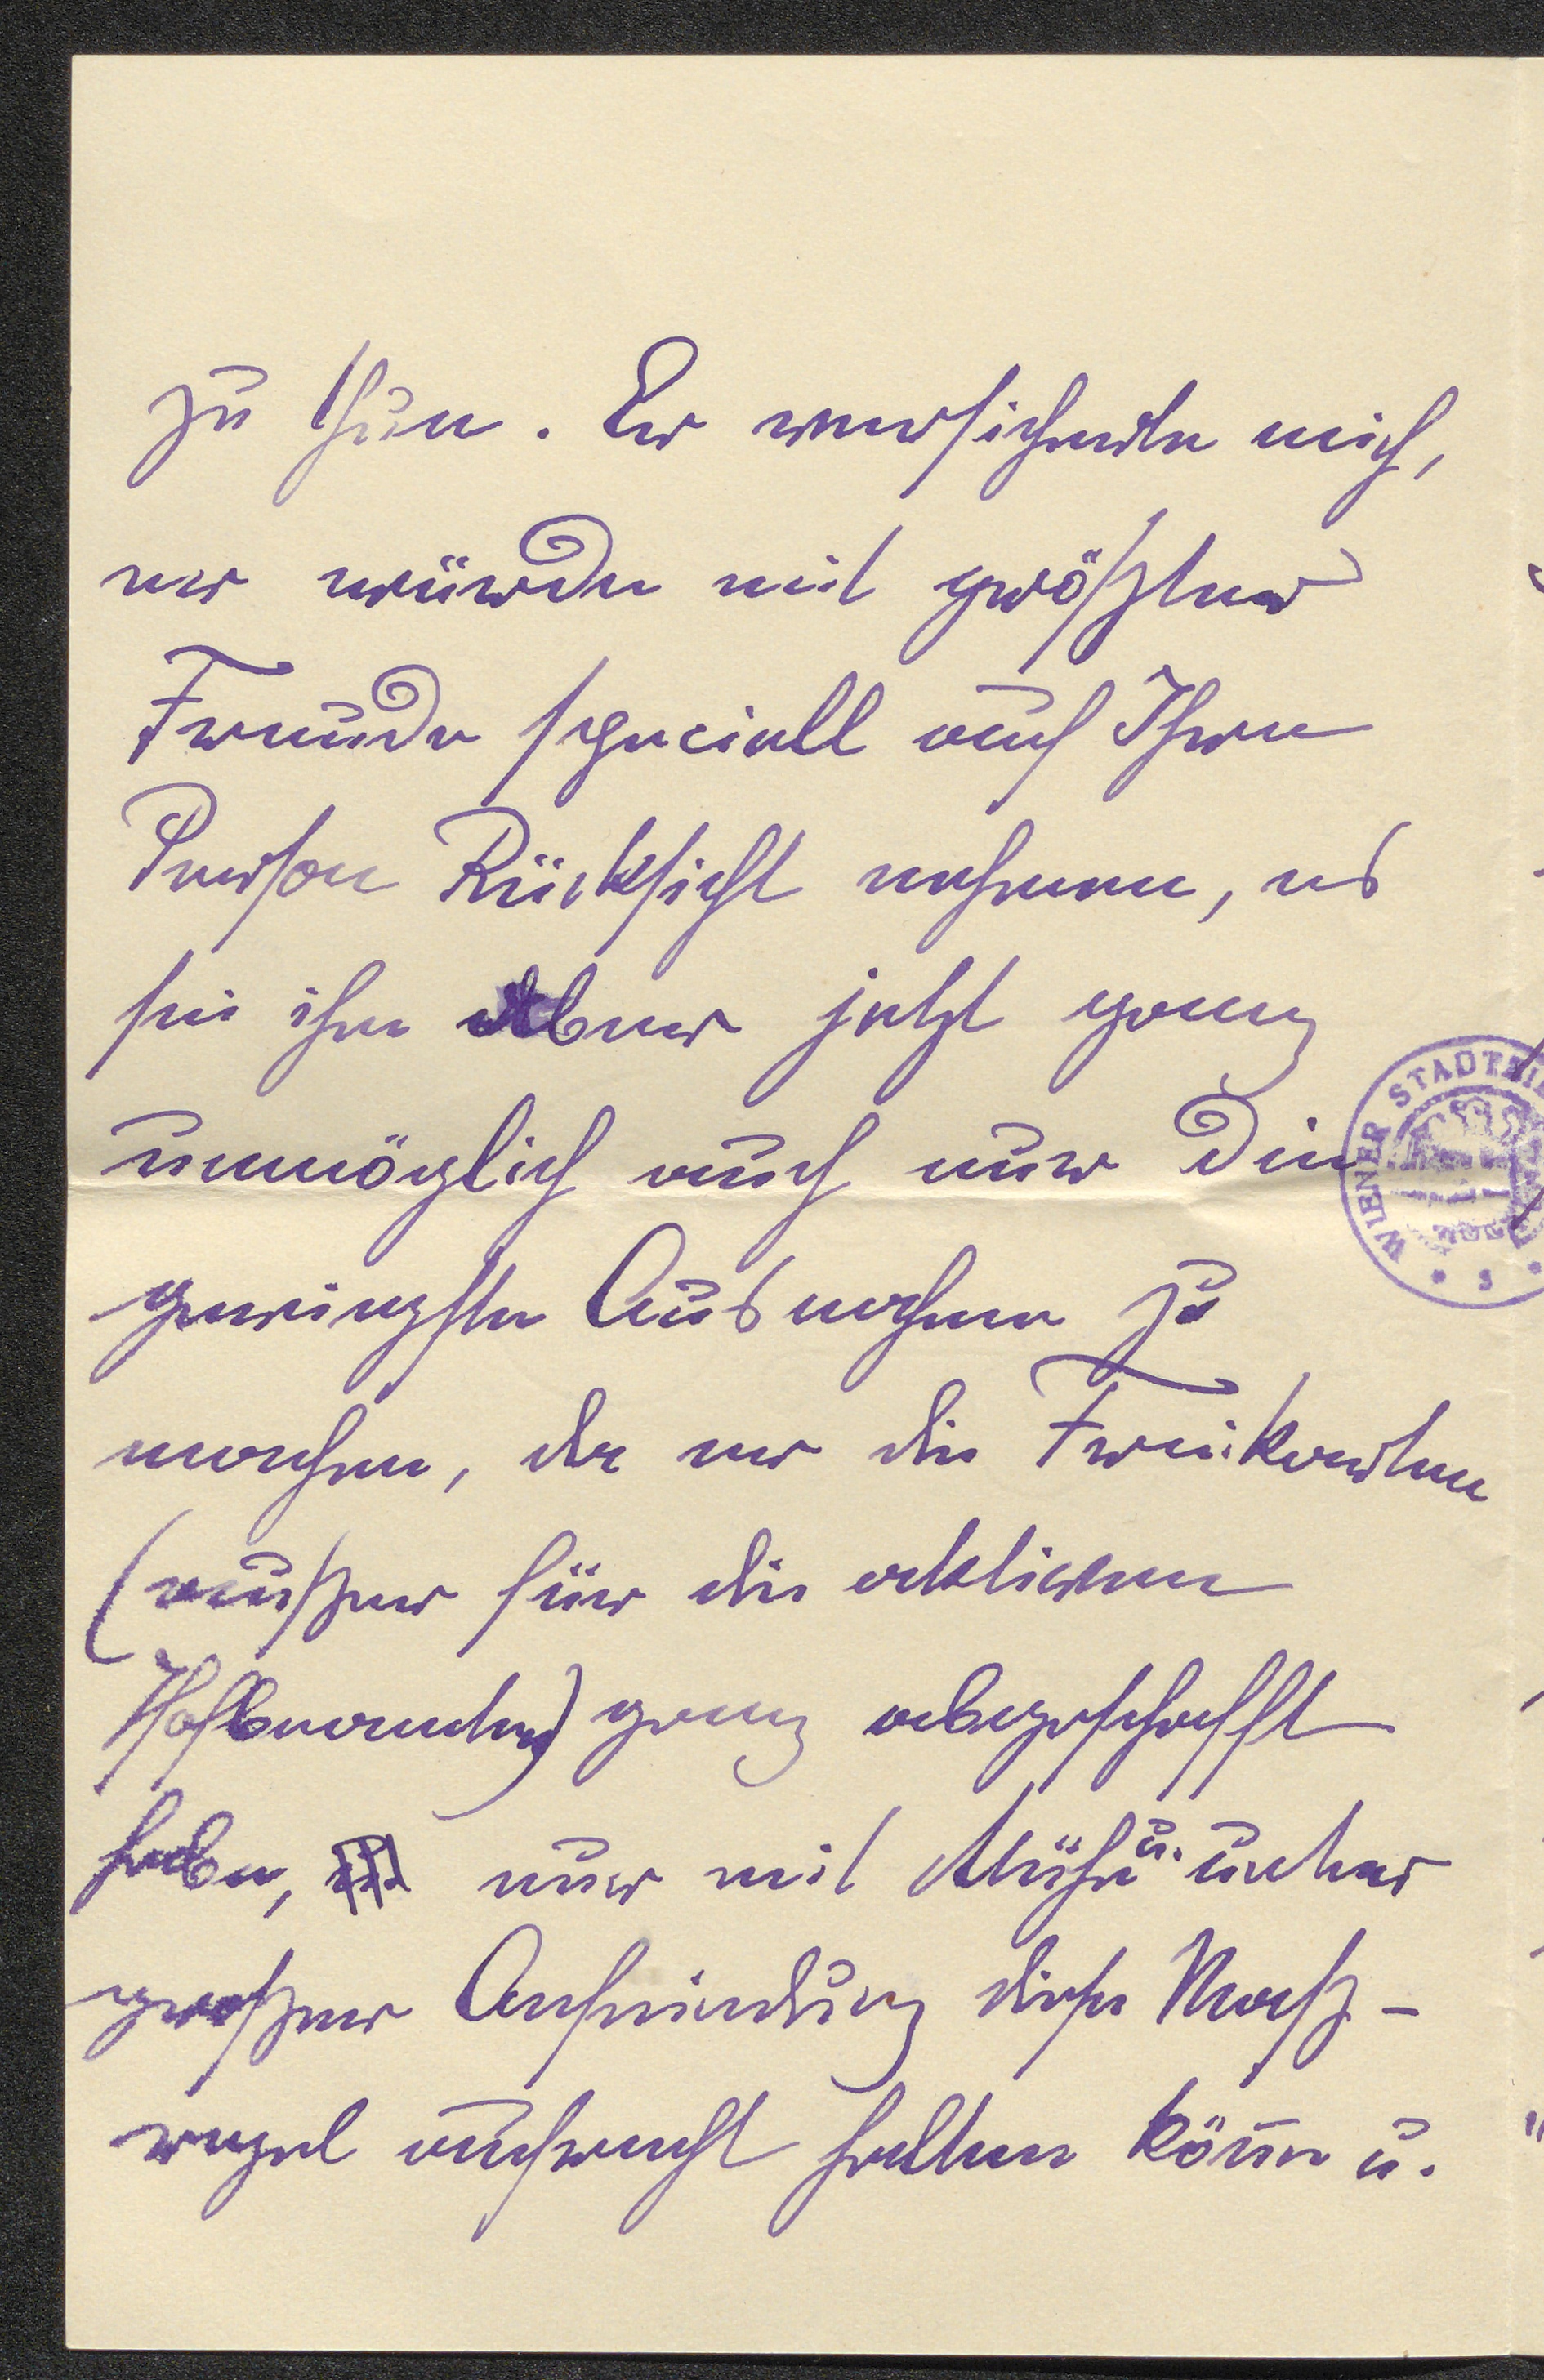 zu thun. Er versicherte mich,
er würde mit größter
Freude speciell auf Ihre
Person Rücksicht nehmen, es
sei ihm aber jetzt ganz
unmöglich auch nur die
geringste Ausnahme zu
machen, da er die Freikarten
(außer für die aktiven
Hofbeamten) ganz abgeschafft
habe, nur mit Mühe u. unter
großer Anfeindung diese Maß-
regel aufrecht halten könne u.
WIENER STADTBI